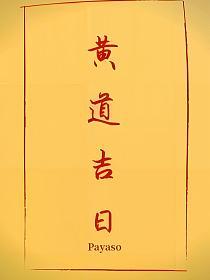 黄道吉日
Payaso